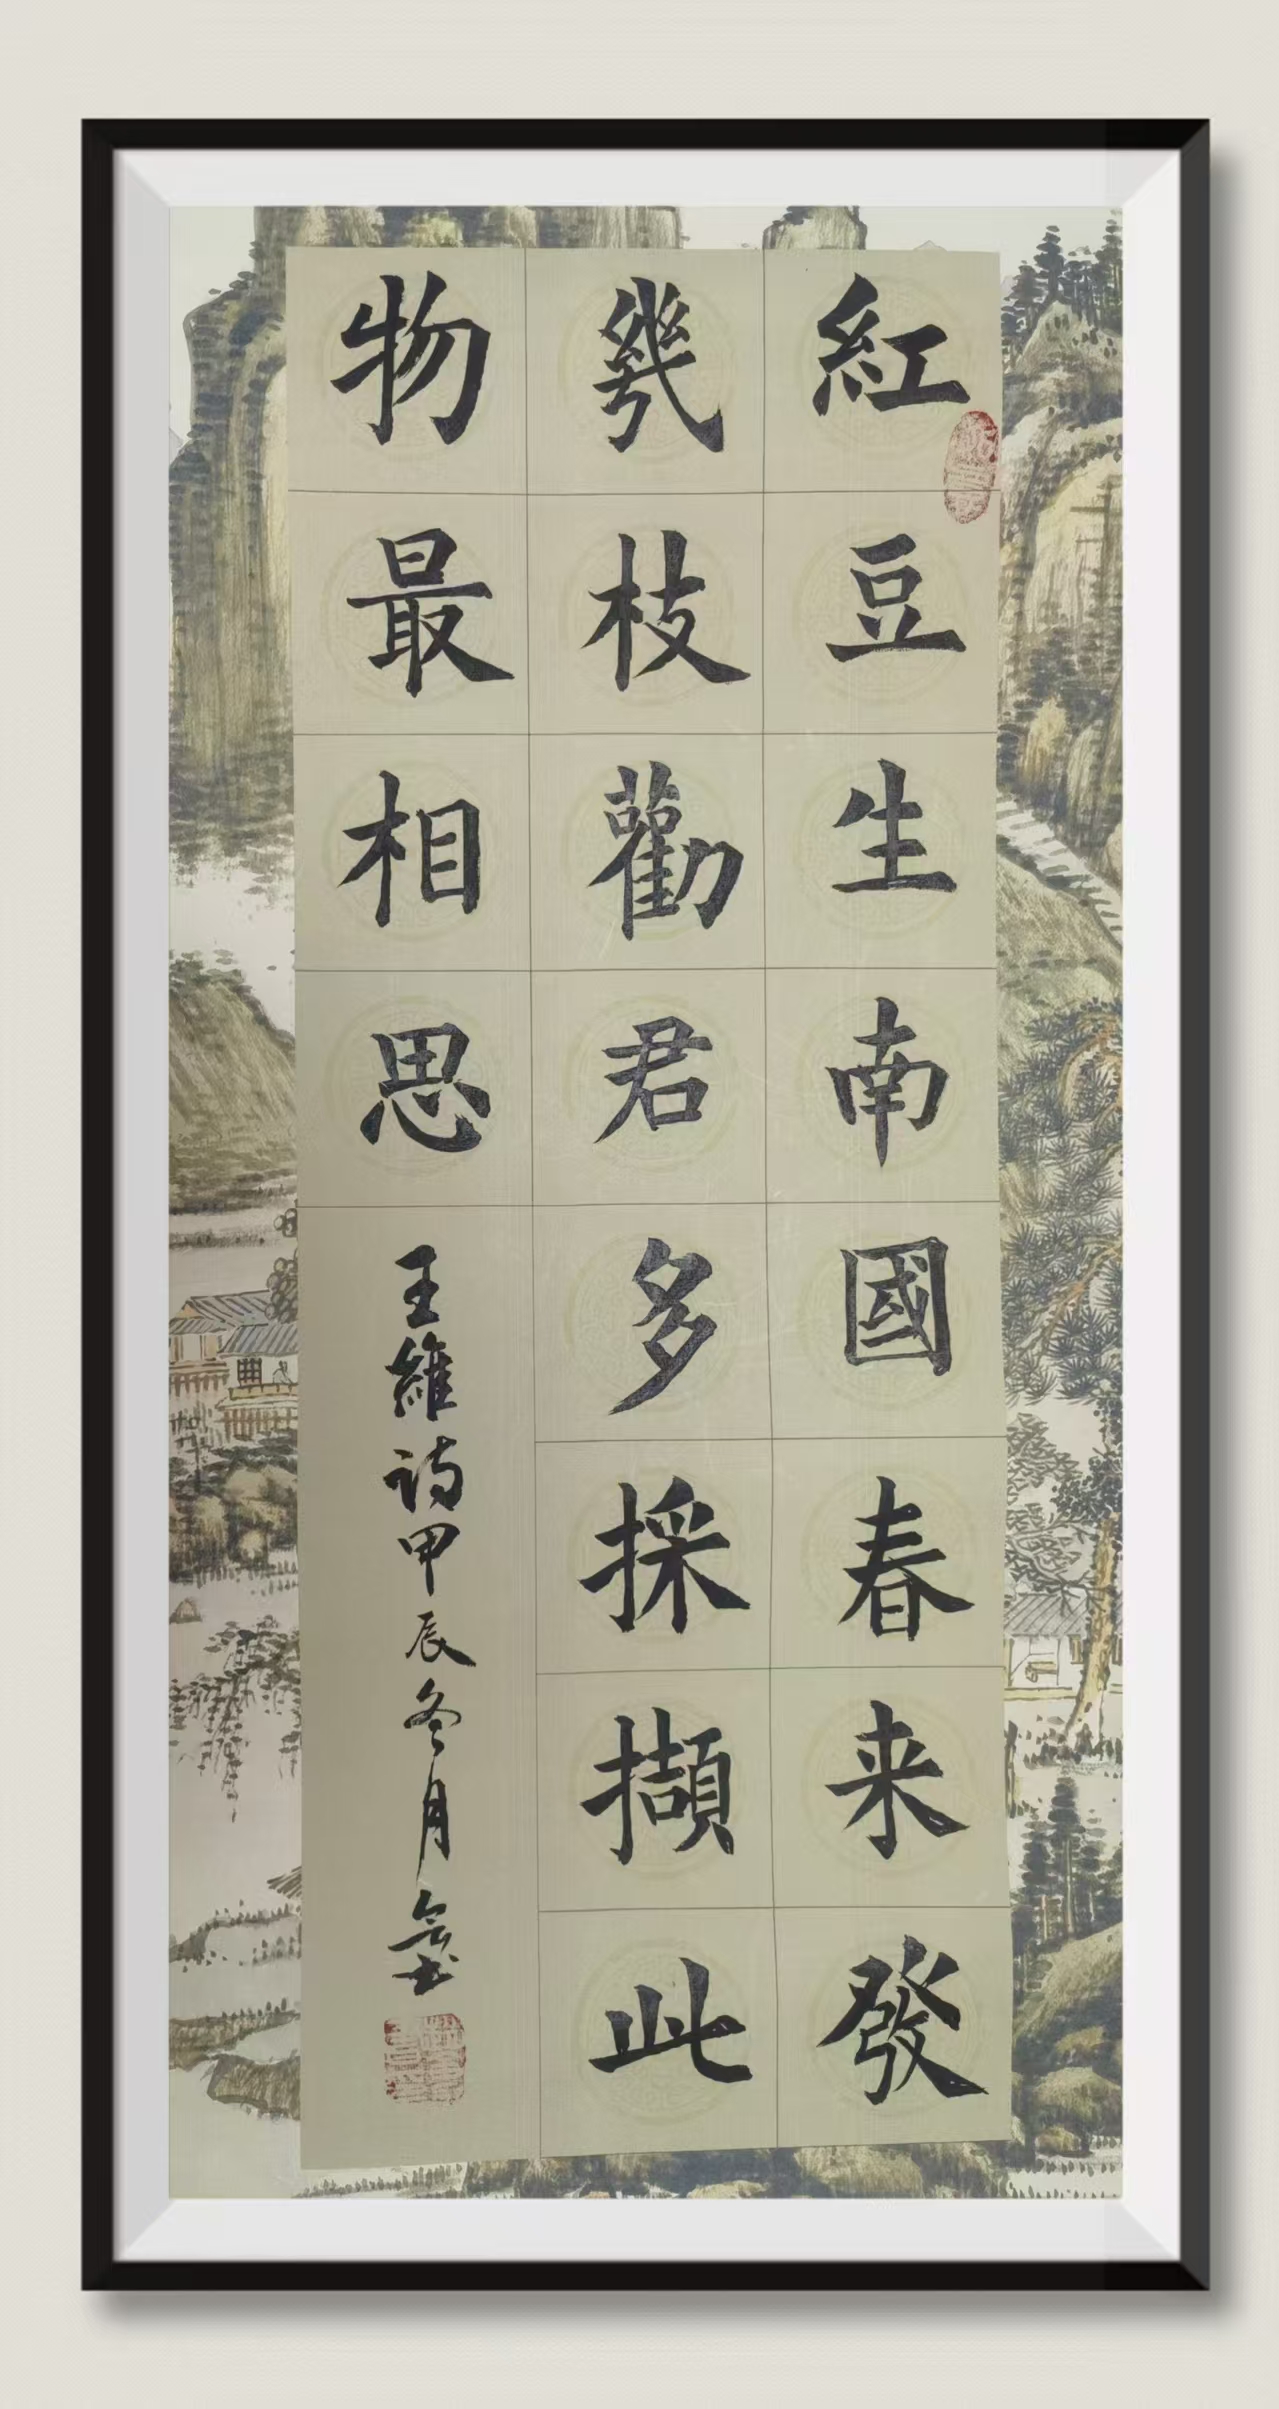 紅豆生南國春来發
幾枝勸君多採擷此
物最相思
王維詩甲辰冬月